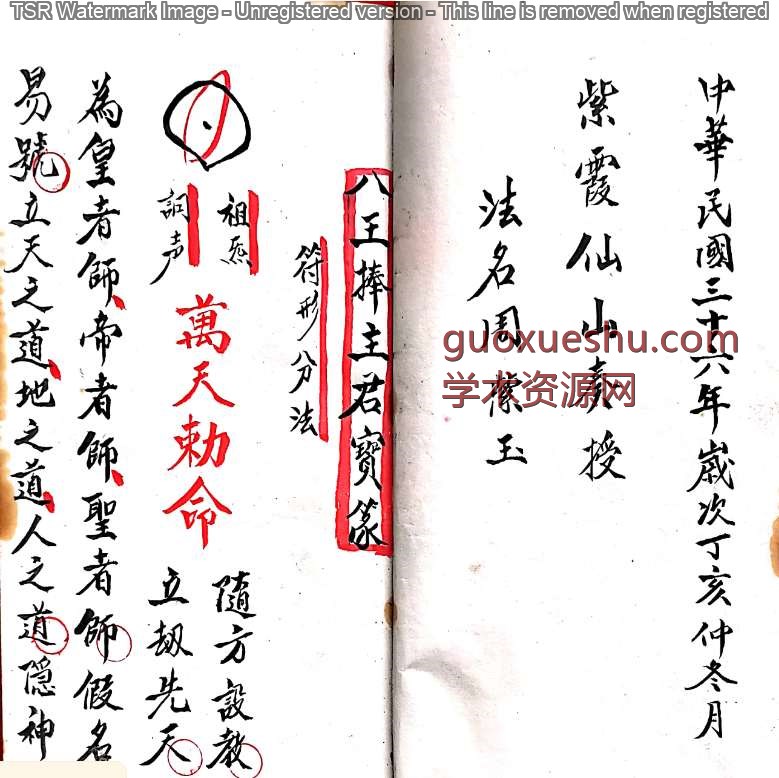 TSR Watermark Image - Unregistered version - This line is removed when registered
中華民國三十六年歲次丁亥仲冬月
紫霞仙山奏授
法名周紫玉
guoxueshu.com
学术资源网
八王捧主君寶篆
符形分法
祖炁
詞声
萬天勅命
隨方設教
立劫先天
為皇者師帝者師聖者師假名
易號立天之道地之道人之道隱神